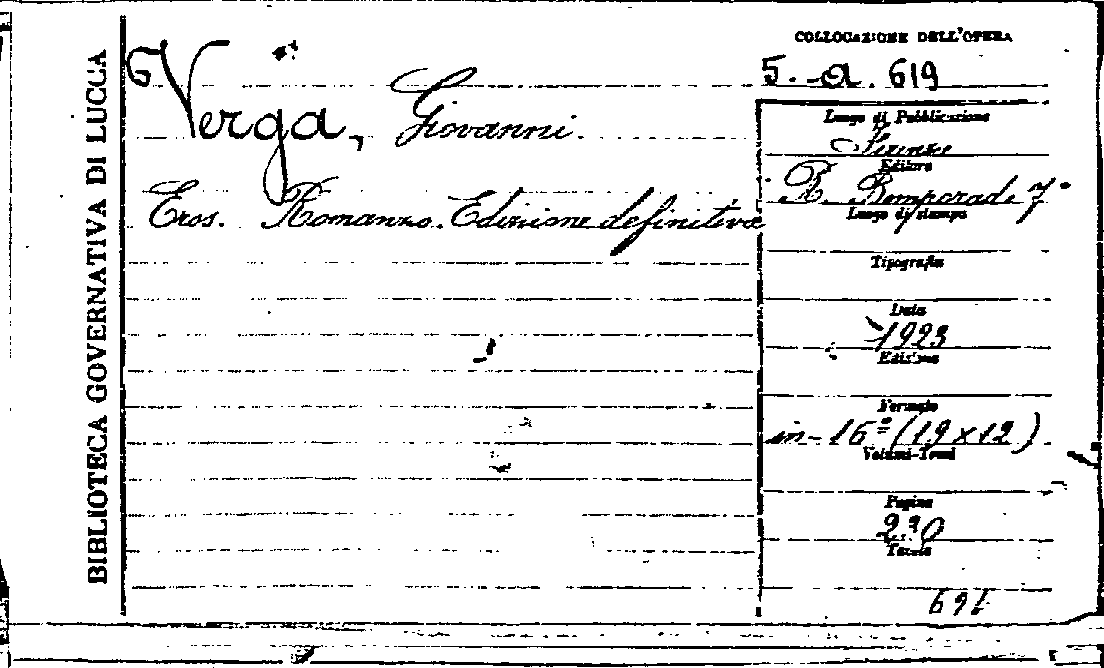 BIBLIOTECA GOVERNATIVA DI LUCCA
COLLOCAZIONE DELL'OPERA
5.-a.619
Verga, Giovanni.
Luogo di Pubblicazione
Firenze
Editore
R. Bemporad. 7°
Eros. Romanzo. Edizione definitiva
Luogo di stampa
Tipografia
Data
1923
Edizione
Formato
in-16º (19x12)
Volumi-Tomi
Pagine
230
Tavole
696